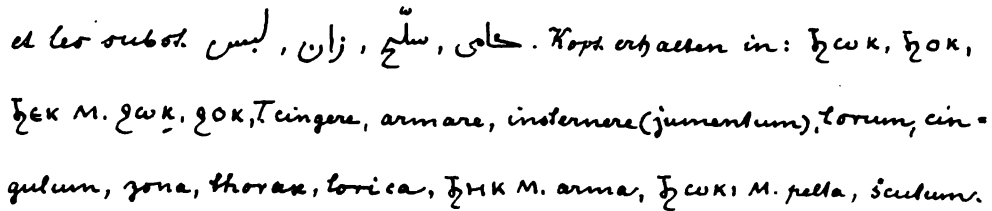 et les subst. لبس , زان , سلّح , حامى . Kopt. erhalten in: ϧⲱⲕ, ϧⲟⲕ,
ϧⲉⲕ M. ϩⲱⲕ, ϩⲟⲕ, T cingere, armare, insternere (jumentum), lorum, cin=
gulum, zona, thorax, lorica, ϧⲏⲕ M. arma, ϧⲱⲕⲓ M. pelta, scutum.